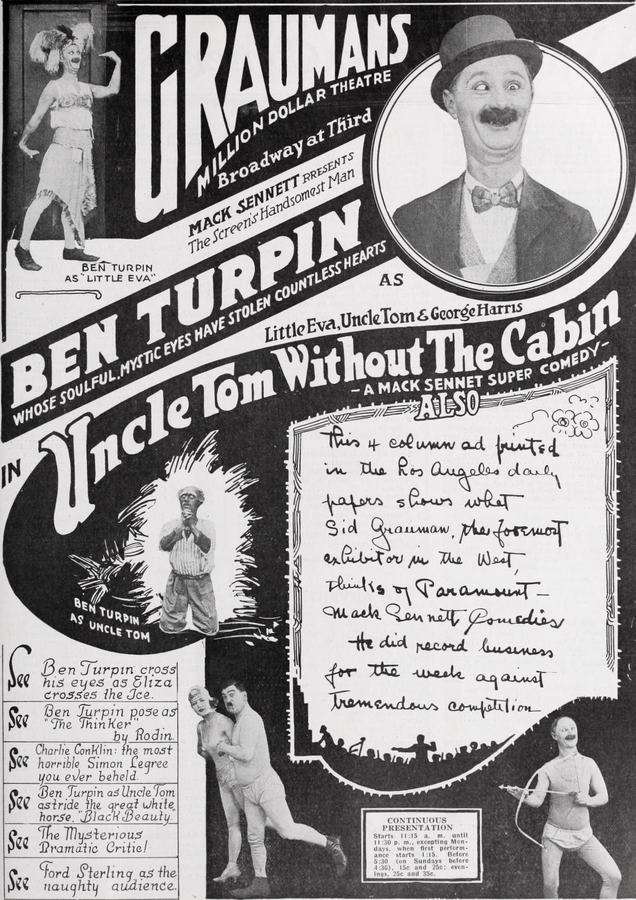 GRAUMANS
MILLION DOLLAR THEATRE
Broadway at Third
MACK SENNETT PRESENTS
The Screen's Handsomest Man
BEN TURPIN
WHOSE SOULFUL, MYSTIC EYES HAVE STOLEN COUNTLESS HEARTS
AS
Little Eva, Uncle Tom & George Harris
IN Uncle Tom Without The Cabin
- A MACK SENNET SUPER COMEDY -
BEN TURPIN
AS "LITTLE EVA"
ALSO
This 4 column ad printed
in the Los Angeles daily
papers shows what
Sid Grauman, the foremost
exhibitor in the West,
thinks of Paramount-
Mack Sennett Comedies
He did record business
for the week against
tremendous competition
BEN TURPIN
AS UNCLE TOM
See Ben Turpin cross
his eyes as Eliza
crosses the Ice.
See Ben Turpin pose as
"The Thinker"
by Rodin
See Charlie Conklin: the most
horrible Simon Legree
you ever beheld
See Ben Turpin as Uncle Tom
astride the great white
horse, "Black Beauty."
See The Mysterious
Dramatic Critic!
See Ford Sterling as the
naughty audience.
CONTINUOUS
PRESENTATION
Starts 11:15 a. m. until
11:30 p. m., excepting Mon-
days, when first perform-
ance starts 1:15. Before
5:30 (on Sundays before
4:30), 15c and 25c; even-
ings, 25c and 35c.